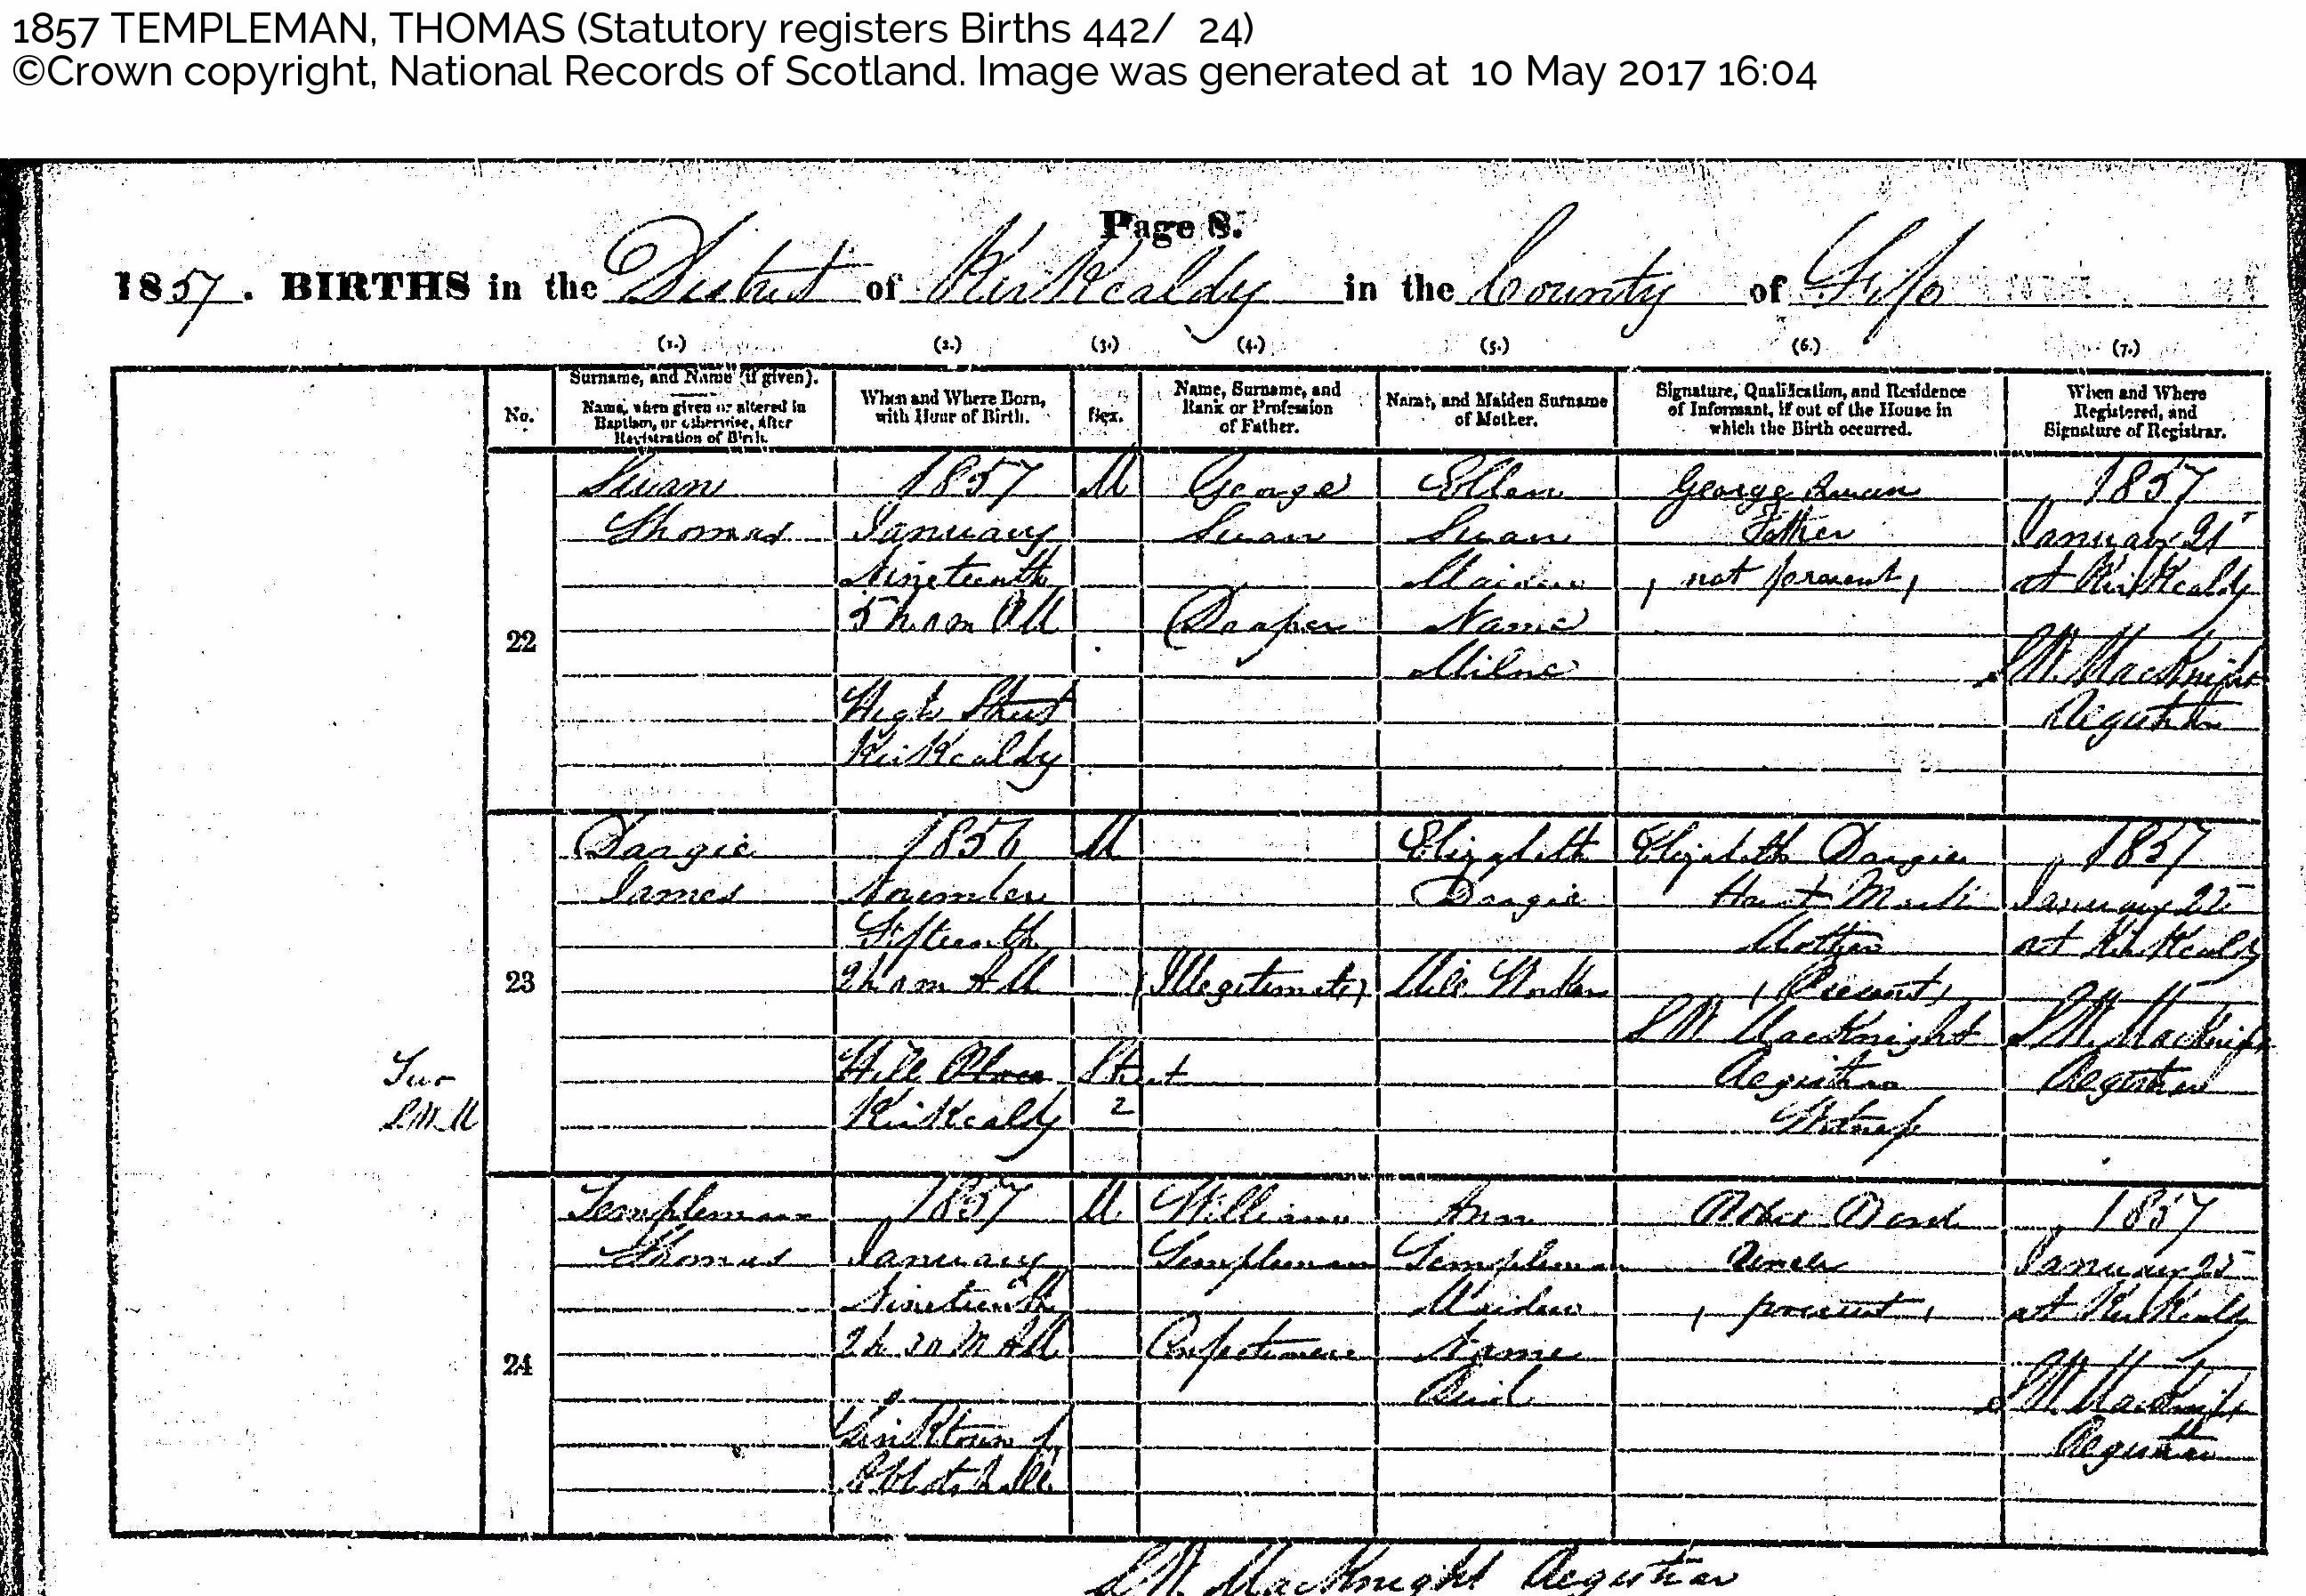 1857 TEMPLEMAN, THOMAS (Statutory registers Births 442/ 24)
©Crown copyright, National Records of Scotland. Image was generated at 10 May 2017 16:04
Page 8.
1857. BIRTHS in the District of Kirkcaldy in the County of Fife
(1.) (2.) (3.) (4.) (5.) (6.) (7.)
No.
Surname, and Name (if given).
Name, when given or altered in
Baptism, or otherwise, after
Registration of Birth.
When and Where Born,
with Hour of Birth.
Sex.
Name, Surname, and
Rank or Profession
of Father.
Name, and Maiden Surname
of Mother.
Signature, Qualification, and Residence
of Informant, if out of the House in
which the Birth occurred.
When and Where
Registered, and
Signature of Registrar.
22
Swan
Thomas
1857
January
Nineteenth
5 h. 0 m PM
High Street
Kirkcaldy
M
George
Swan
Draper
Ellen
Swan
Maiden
Name
Milne
George Swan
Father
(not present)
1857
January 21
at Kirkcaldy
S W. MacKnight
Registrar
23
Two
S.W.M
Dargie
James
1856
November
Fifteenth
2 h 0 m AM
Hill Place Street
Kirkcaldy 2
M
(Illegitimate)
Elizabeth
Dargie
Mill Worker
Elizabeth Dargie
Mother
(Present)
S W. MacKnight
Registrar
Witness
1857
January 22
at Kirkcaldy
S W. MacKnight
Registrar
24
Templeman
Thomas
1857
January
Nineteenth
2 h 30 M AM
Linktown of
Abbotshall
M
William
Templeman
Confectioner
Ann
Templeman
Maiden
Name
Reid
Uncle
(present)
1857
January 25
at Kirkcaldy
S W. MacKnight
Registrar
S W. MacKnight Registrar